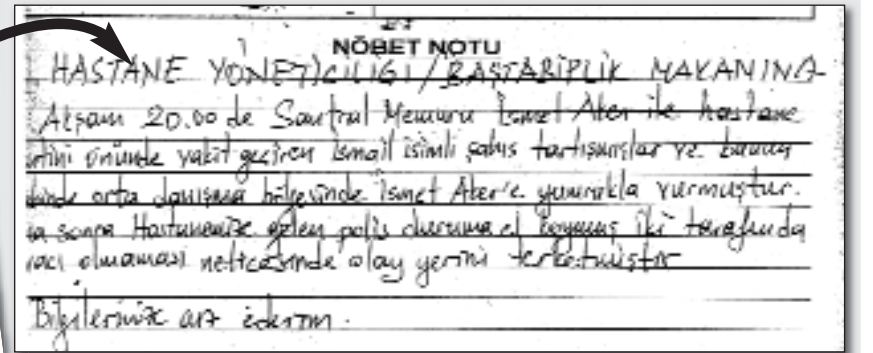 NÖBET NOTU
HASTANE YÖNETİCİLİĞİ / BAŞTABİPLİK MAKAMINA
Akşam 20.00 de Santral Memuru İsmet Ater ile hastane
önünde vakit geçiren İsmail isimli şahıs tartışmışlar ve bunun
orta danışma bölgesinde İsmet Ater'e yumrukla vurmuştur.
sonra Hastanemize gelen polis duruma el koymuş iki tarafında
olmaması neticesinde olay yerini terketmiştir
Bilgilerinize arz ederim.